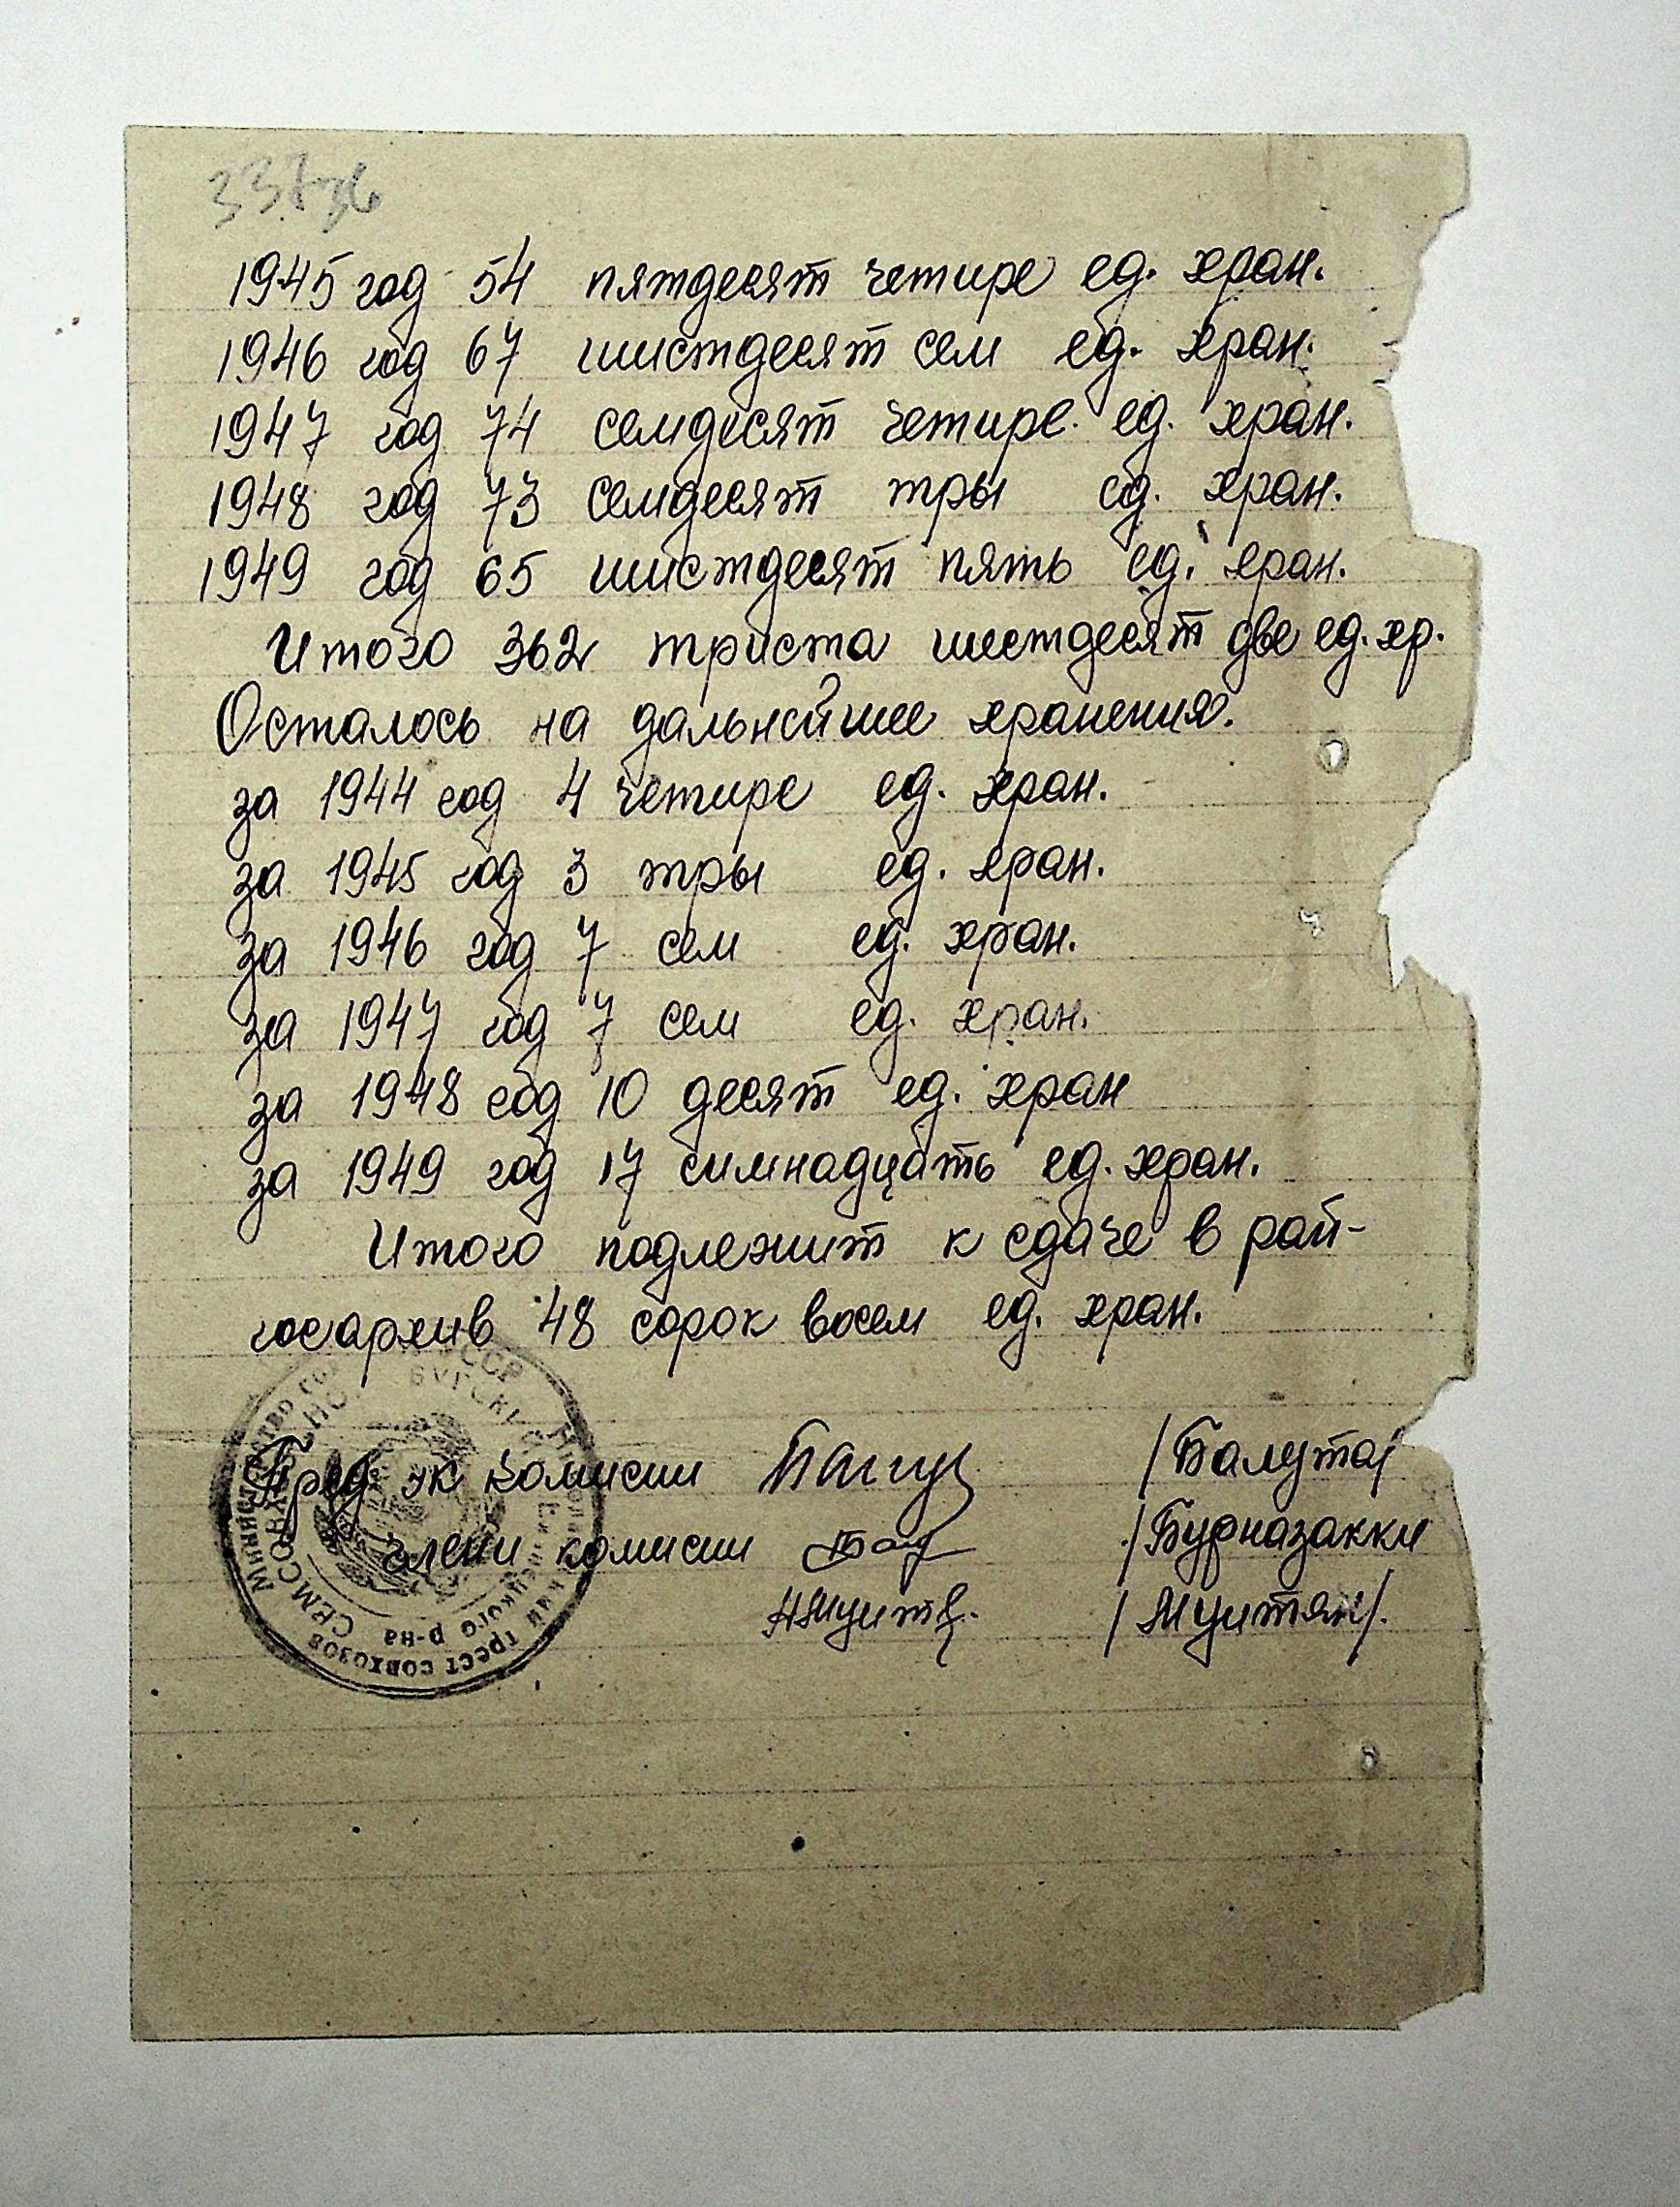 1945 год 54 пятдесят четире ед. хран.
1946 год 67 шистдесят сем ед. хран.
1947 год 74 семдесят четире ед. хран.
1948 год 73 семдесят тры ед. хран.
1949 год 65 шистдесят пять ед. хран.
Итого 362 триста шестдесят две ед. хр.
Осталось на дальнейшее хранения.
за 1944 год 4 четире ед. хран.
за 1945 год 3 тры ед. хран.
за 1946 год 7 сем ед. хран.
за 1947 год 7 сем ед. хран.
за 1948 год 10 десят ед. хран
за 1949 год 17 симнадцать ед. хран.
Итого подлежит к сдаче в рай-
госархив 48 сорок восем ед. хран.
Пред. эк комисии /Балута/
члени комисии /Бурназакки
/Мунтян/.
Министерство
трест совхозов
р-на